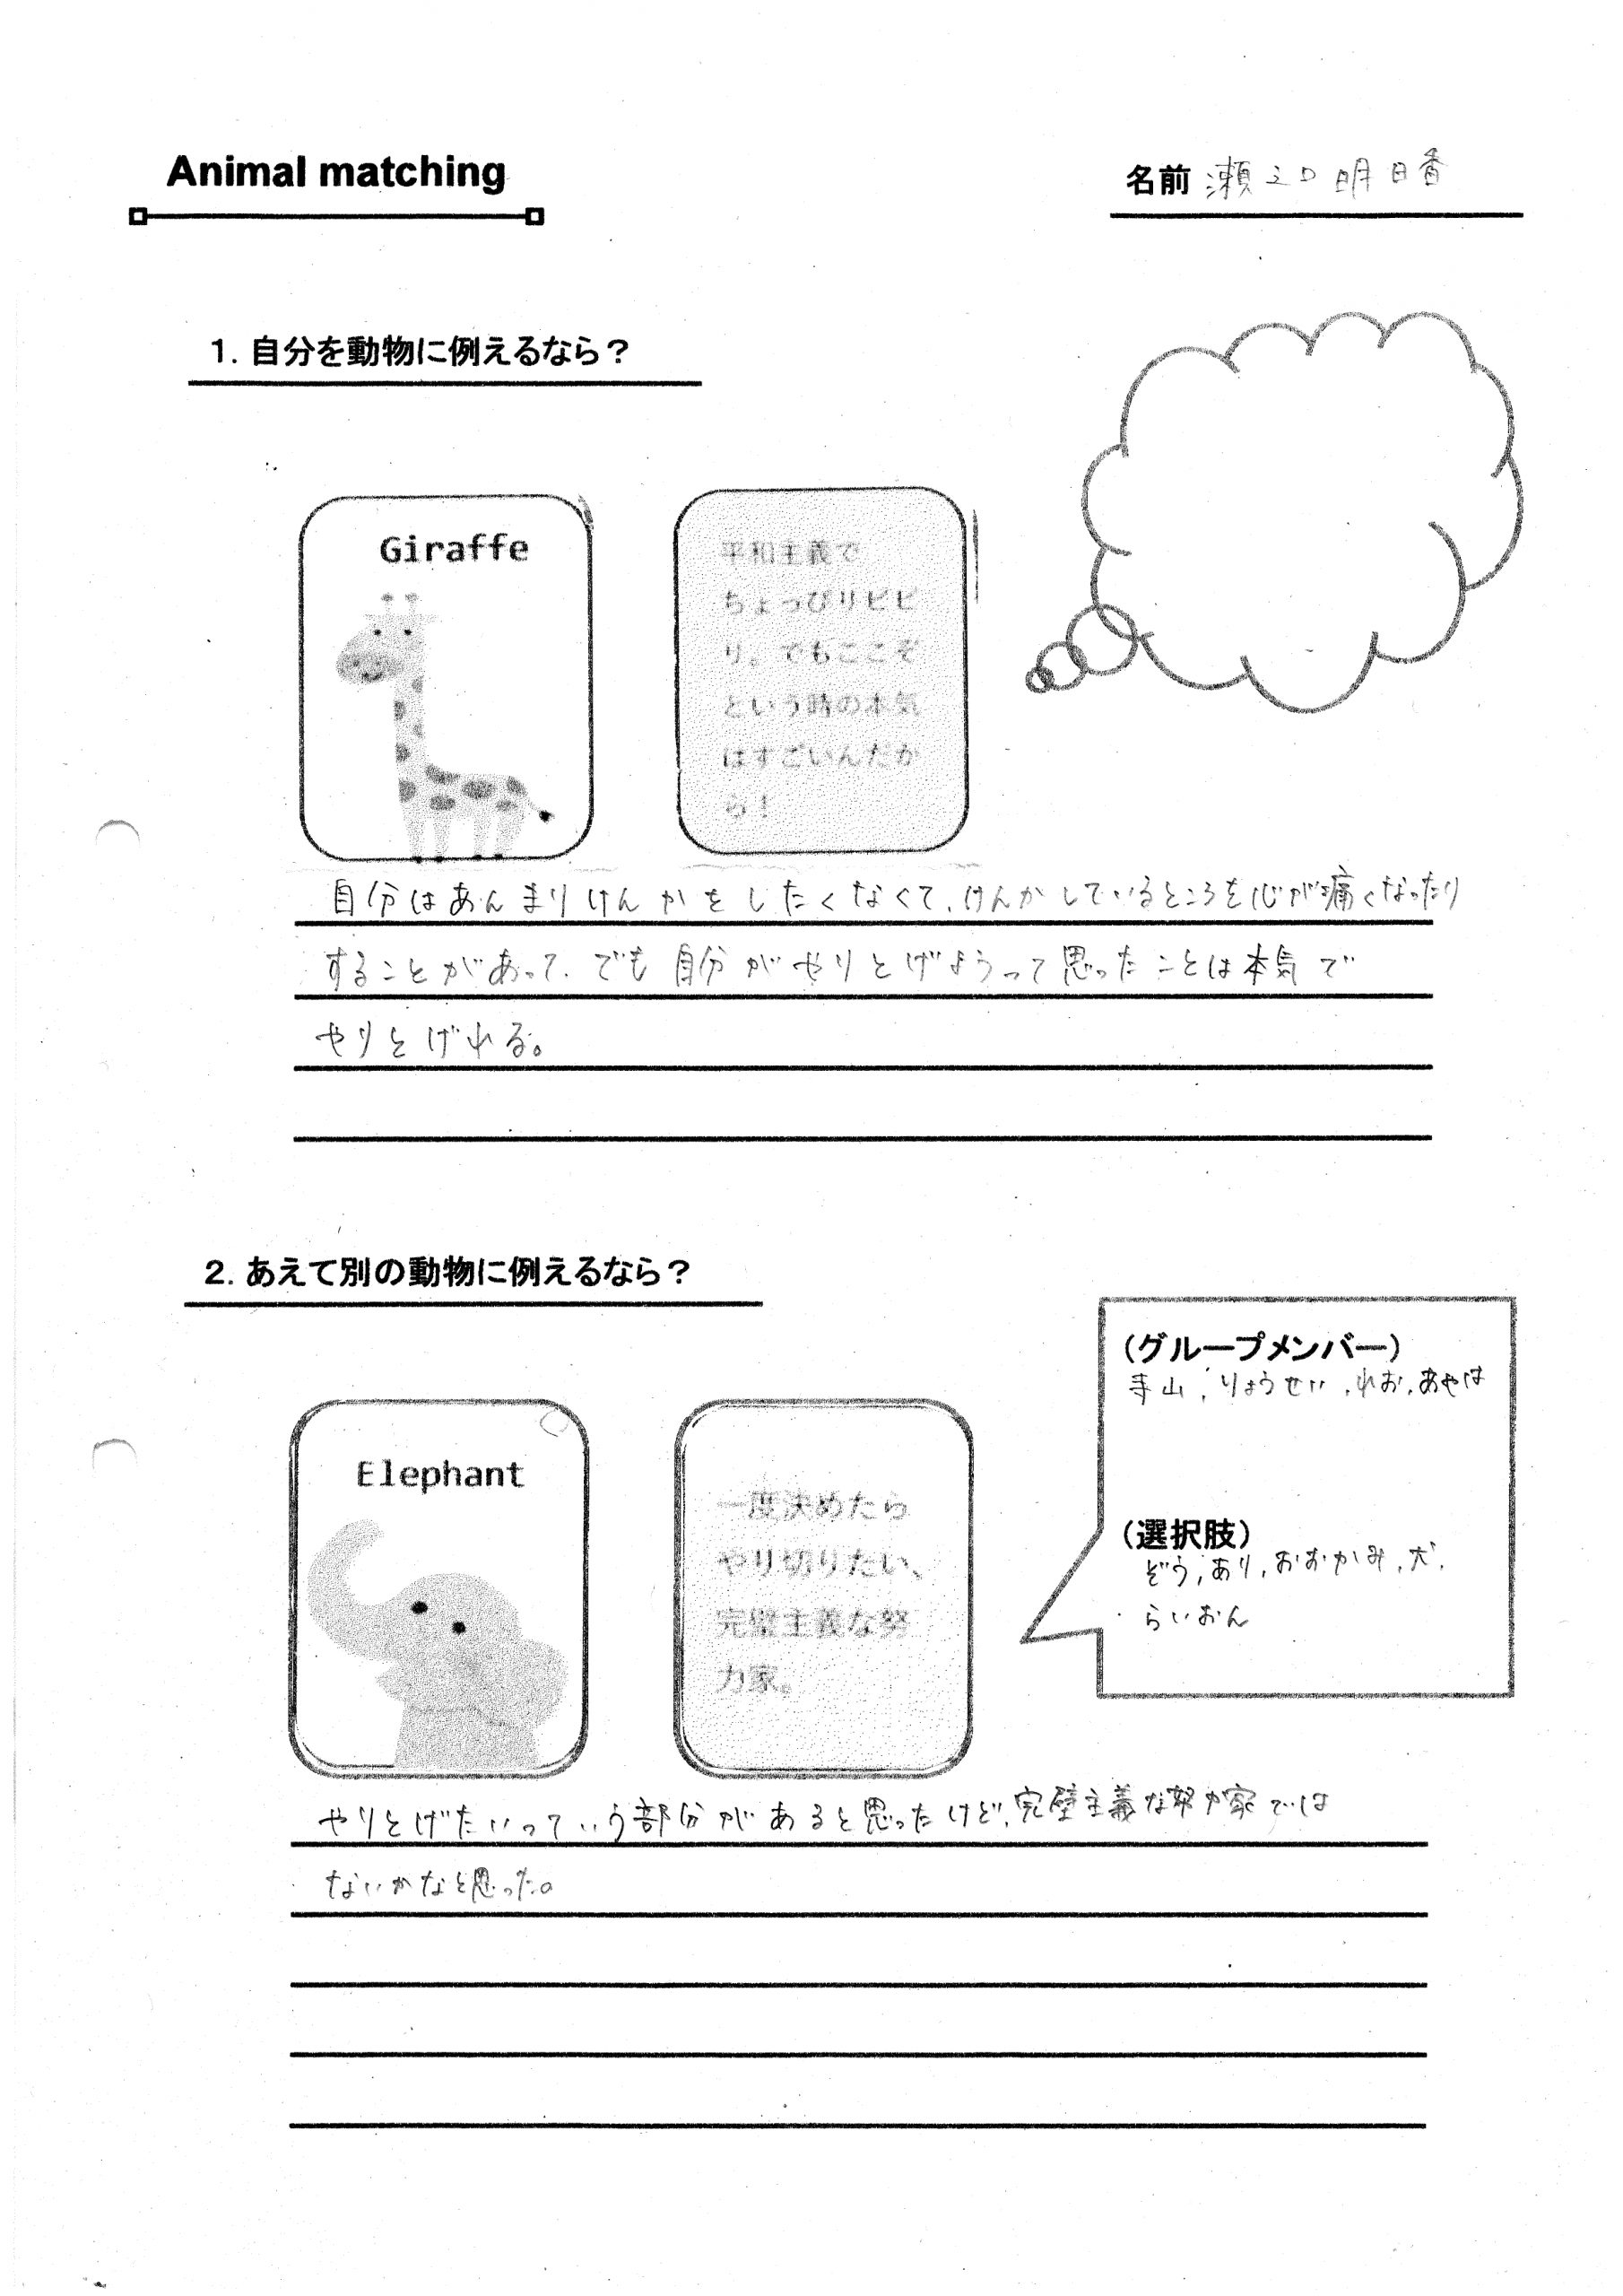 Animal matching
名前 瀬之口 明日香
1. 自分を動物に例えるなら？
Giraffe
平和主義で
ちょっぴりビビ
り。でもここぞ
という時の本気
はすごいんだか
ら！
自分はあんまりけんかをしたくなくて、けんかしているところを心が痛くなったり
することがあって、でも自分がやりとげようって思ったことは本気で
やりとげれる。
2. あえて別の動物に例えるなら？
(グループメンバー)
りょうせい、れお、あやは
(選択肢)
ぞう、あり、おおかみ、犬、
らいおん
Elephant
一度決めたら
やり切りたい、
完璧主義な努
力家。
やりとげたいっていう部分があると思ったけど、完璧主義な努力家では
ないかなと思った。